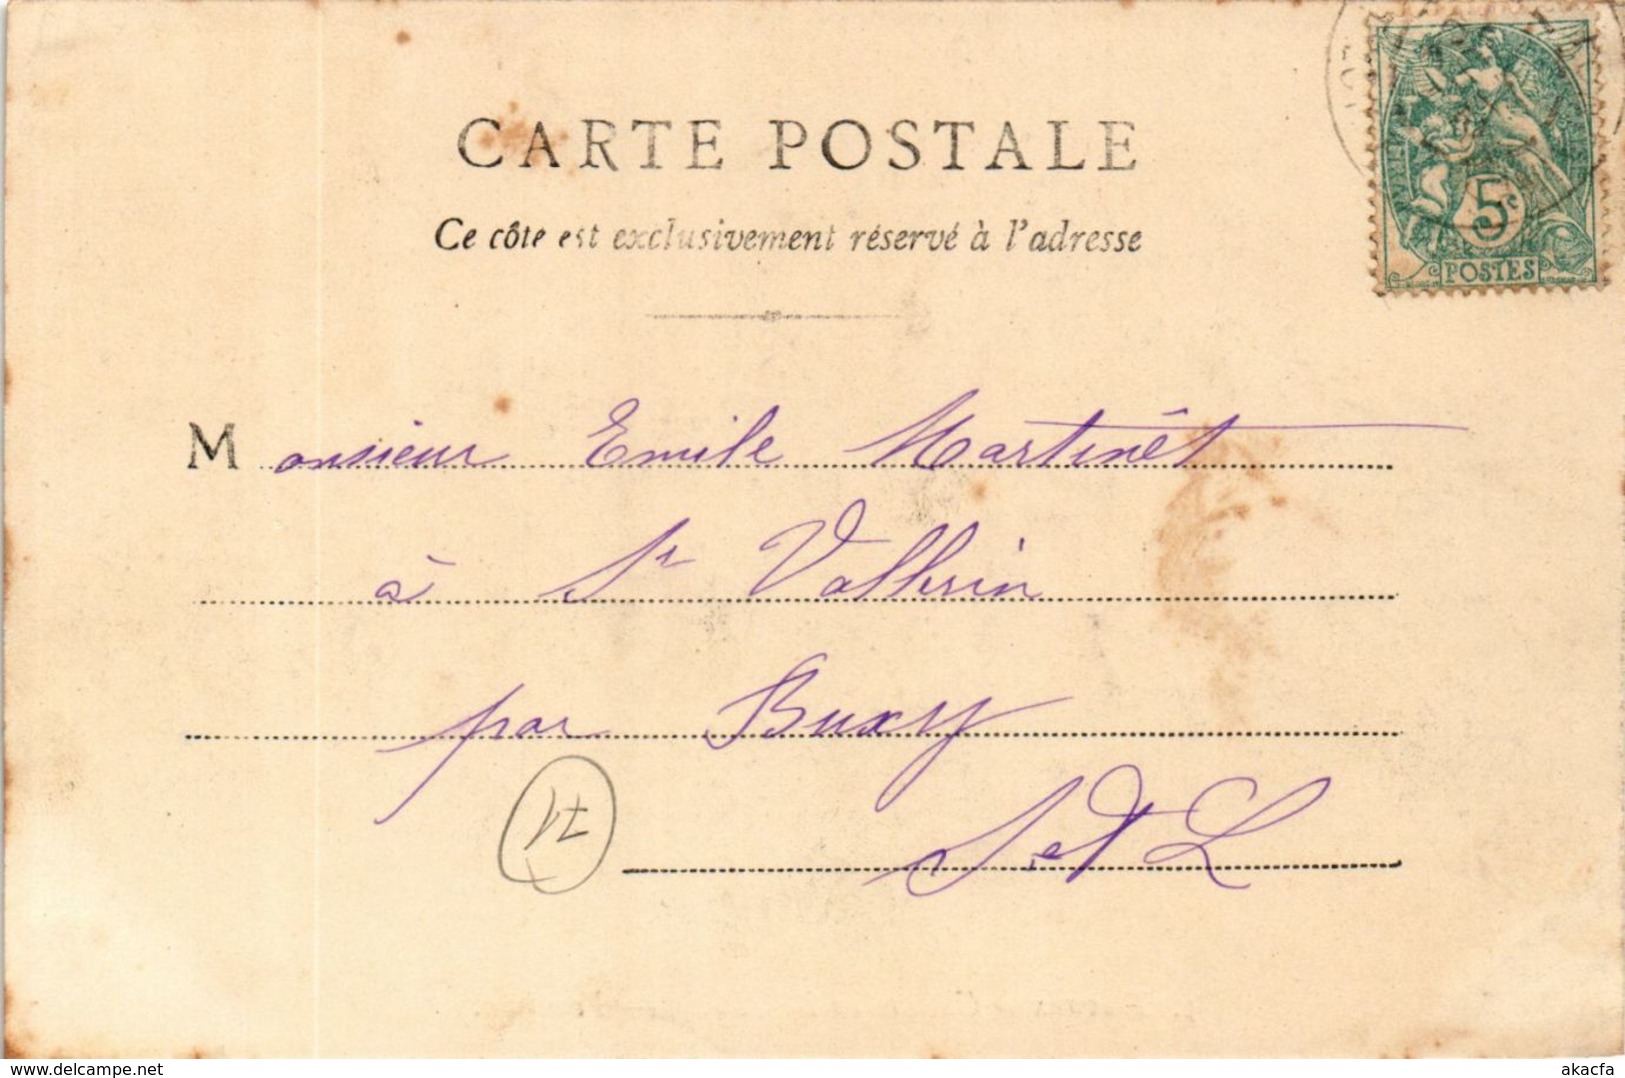 CARTE POSTALE
Ce côté est exclusivement réservé à l'adresse
5c
POSTES
Monsieur Emile Martinêt
à St Vallerin
par Buxy
S et L
71
delcampe.net
akacfa